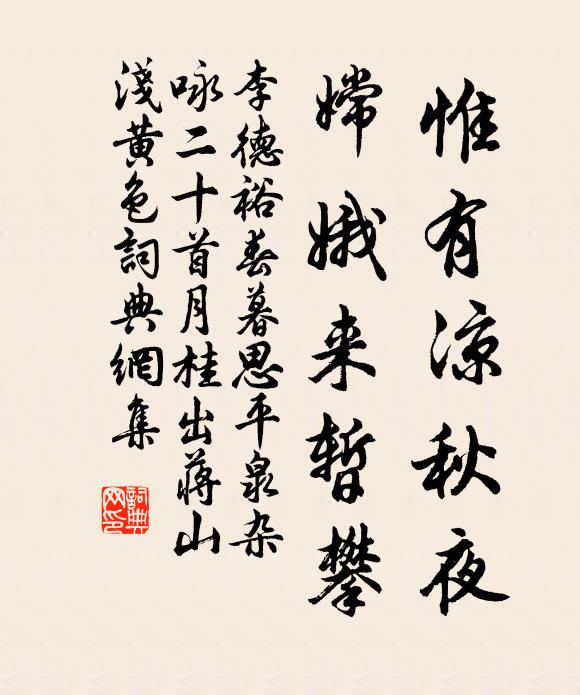 惟有涼秋夜
嫦娥来暫攀
李德裕春暮思平泉杂
咏二十首月桂出蒋山
淺黃色詞典網集
詞典网印